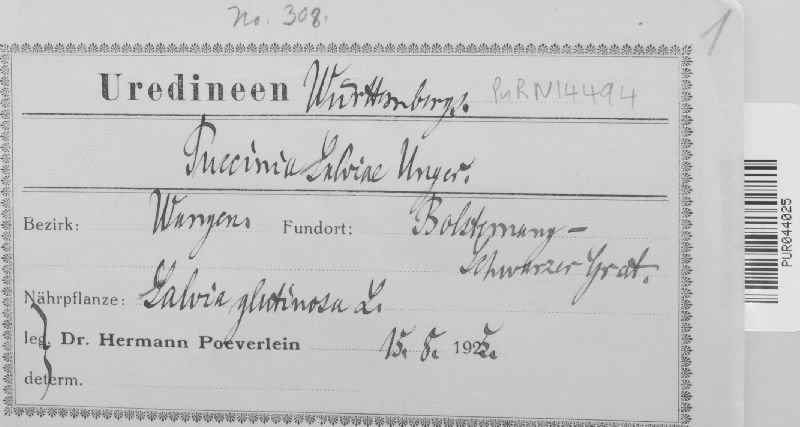 No. 308.
1
Uredineen Württembergs.
PUR N14494
Puccinia Salviae Unger.
Bezirk: Wangen. Fundort: Bolsternang –
Schwarzer Grat.
Nährpflanze: Salvia glutinosa L.
leg. Dr. Hermann Poeverlein 15. 8. 192
determ.
PUR044025